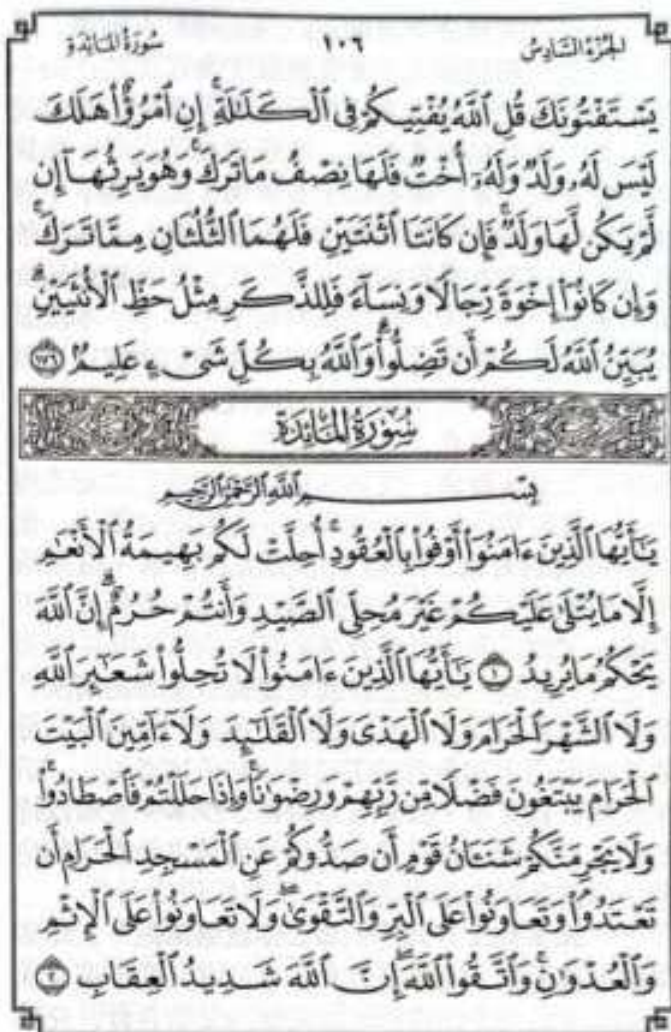 الجزء السادس ١٠٦ سورة المائدة
يَسْتَفْتُونَكَ قُلِ ٱللَّهُ يُفْتِيكُمْ فِى ٱلْكَلَٰلَةِ ۚ إِنِ ٱمْرُؤٌا۟ هَلَكَ
لَيْسَ لَهُۥ وَلَدٌ وَلَهُۥٓ أُخْتٌ فَلَهَا نِصْفُ مَا تَرَكَ ۚ وَهُوَ يَرِثُهَآ إِن
لَّمْ يَكُن لَّهَا وَلَدٌ ۚ فَإِن كَانَتَا ٱثْنَتَيْنِ فَلَهُمَا ٱلثُّلُثَانِ مِمَّا تَرَكَ ۚ
وَإِن كَانُوٓا۟ إِخْوَةً رِّجَالًا وَنِسَآءً فَلِلذَّكَرِ مِثْلُ حَظِّ ٱلْأُنثَيَيْنِ ۗ
يُبَيِّنُ ٱللَّهُ لَكُمْ أَن تَضِلُّوا۟ ۗ وَٱللَّهُ بِكُلِّ شَىْءٍ عَلِيمٌۢ ١٧٦
سُورَةُ المَائِدَةِ
بِسْمِ ٱللَّهِ ٱلرَّحْمَٰنِ ٱلرَّحِيمِ
يَٰٓأَيُّهَا ٱلَّذِينَ ءَامَنُوٓا۟ أَوْفُوا۟ بِٱلْعُقُودِ ۚ أُحِلَّتْ لَكُم بَهِيمَةُ ٱلْأَنْعَٰمِ
إِلَّا مَا يُتْلَىٰ عَلَيْكُمْ غَيْرَ مُحِلِّى ٱلصَّيْدِ وَأَنتُمْ حُرُمٌ ۗ إِنَّ ٱللَّهَ
يَحْكُمُ مَا يُرِيدُ ١ يَٰٓأَيُّهَا ٱلَّذِينَ ءَامَنُوا۟ لَا تُحِلُّوا۟ شَعَٰٓئِرَ ٱللَّهِ
وَلَا ٱلشَّهْرَ ٱلْحَرَامَ وَلَا ٱلْهَدْىَ وَلَا ٱلْقَلَٰٓئِدَ وَلَآ ءَآمِّينَ ٱلْبَيْتَ
ٱلْحَرَامَ يَبْتَغُونَ فَضْلًا مِّن رَّبِّهِمْ وَرِضْوَٰنًا ۚ وَإِذَا حَلَلْتُمْ فَٱصْطَادُوا۟ ۚ
وَلَا يَجْرِمَنَّكُمْ شَنَـَٔانُ قَوْمٍ أَن صَدُّوكُمْ عَنِ ٱلْمَسْجِدِ ٱلْحَرَامِ أَن
تَعْتَدُوا۟ ۘ وَتَعَاوَنُوا۟ عَلَى ٱلْبِرِّ وَٱلتَّقْوَىٰ ۖ وَلَا تَعَاوَنُوا۟ عَلَى ٱلْإِثْمِ
وَٱلْعُدْوَٰنِ ۚ وَٱتَّقُوا۟ ٱللَّهَ ۖ إِنَّ ٱللَّهَ شَدِيدُ ٱلْعِقَابِ ٢